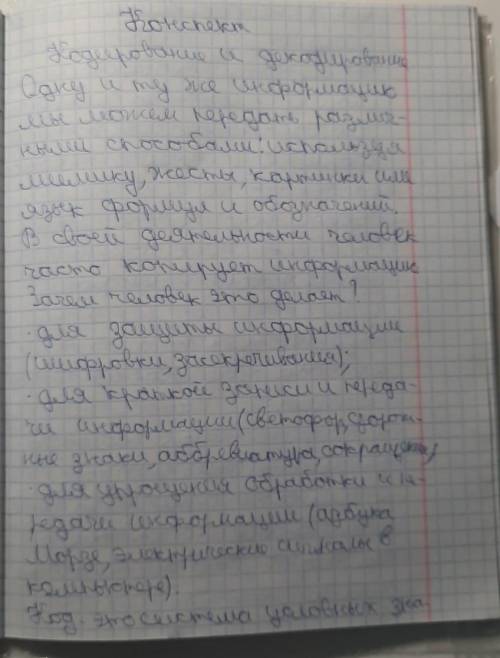 Конспект
Кодирование и декодирование
Одну и ту же информацию
мы можем передать различ-
ными способами: используя
мимику, жесты, картинки или
язык формул и обозначений.
В своей деятельности человек
часто копирует информацию
Зачем человек это делает?
· для защиты информации
(шифровки, засекречивания);
· для краткой записи и переда-
чи информации (светофор, дорож-
ные знаки, аббревиатура, сокращения)
· для упрощения обработки и пе-
редачи информации (азбука
Морзе, электрические сигналы в
компьютере).
Код - это система условных зна-